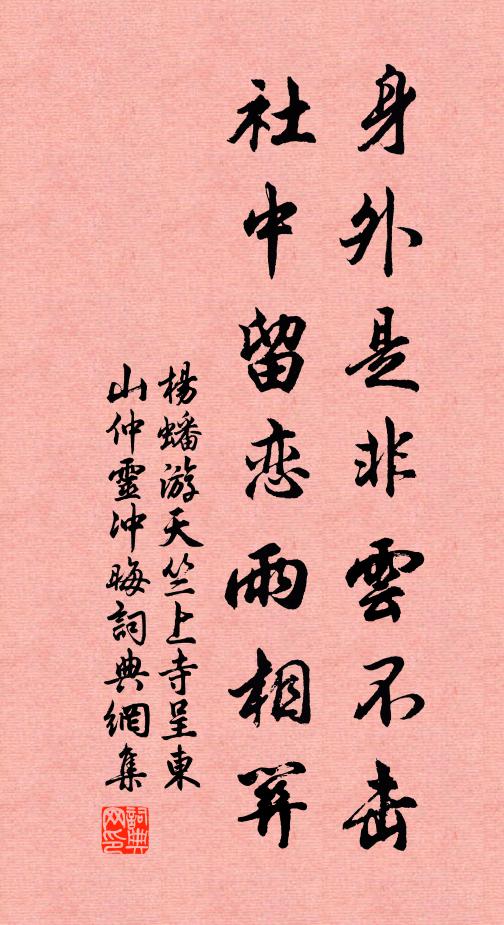 身外是非雲不击
社中留恋雨相
楊蟠游天竺上寺呈東
山仲靈冲晦詞典網集
詞典
网印